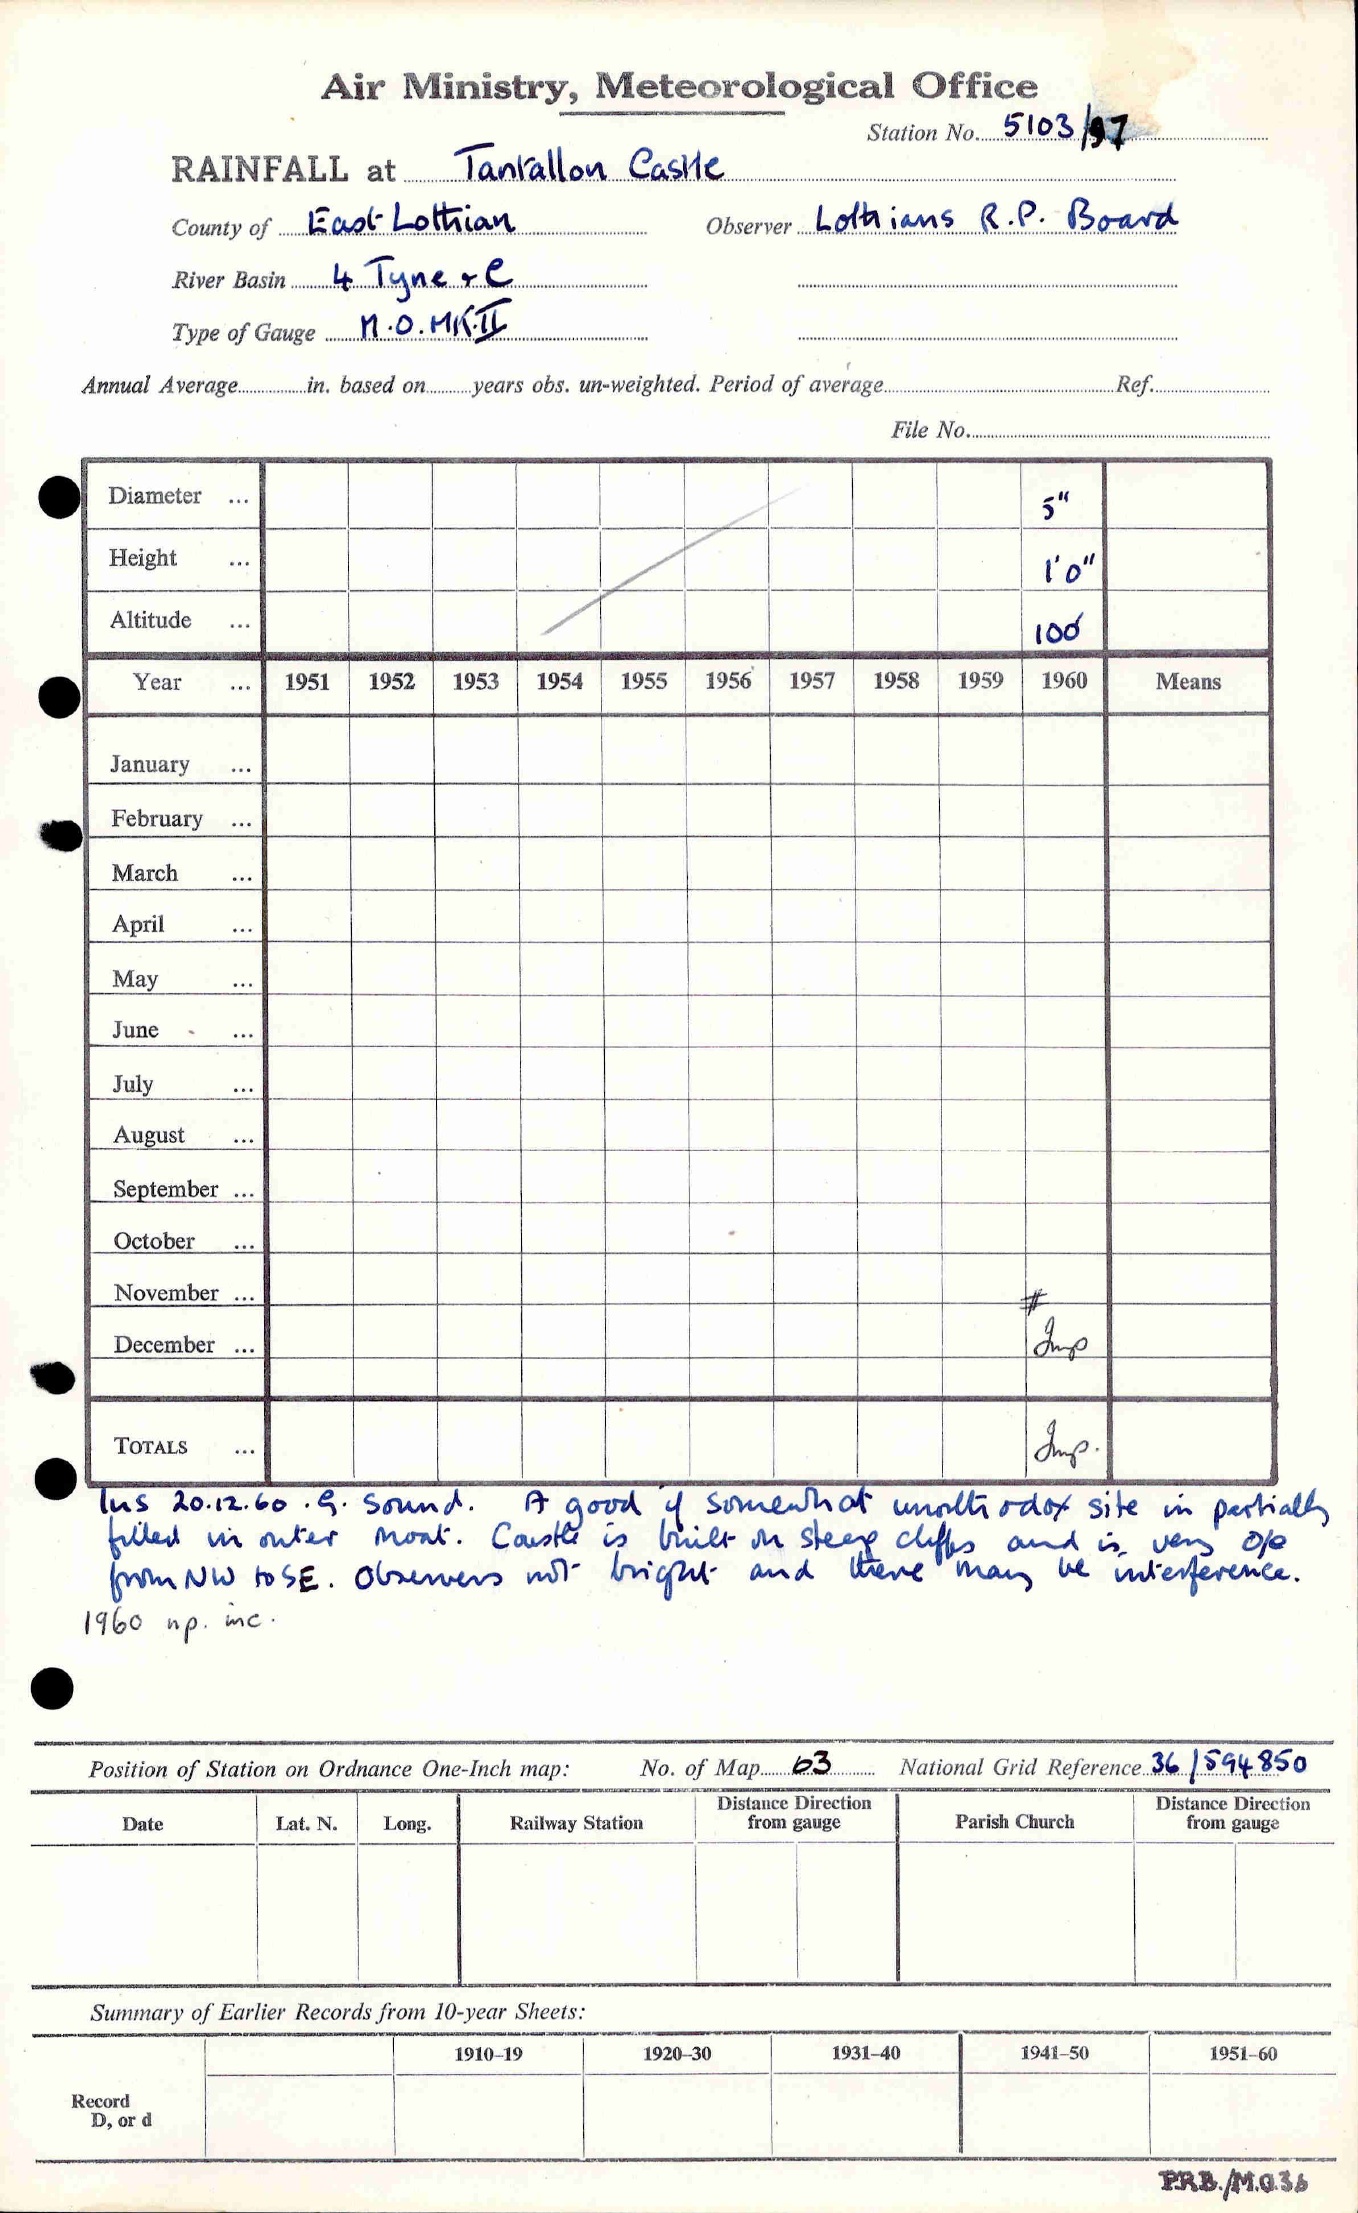 Air Ministry, Meteorological Office
Station No. 5103/97
RAINFALL at Tantallon Castle
County of East Lothian Observer Lothians R.P. Board
River Basin 4 Tyne + C
Type of Gauge M.O. MK.II
Annual Average in. based on years obs. un-weighted. Period of average Ref.
File No.
Diameter ... 5"
Height ... 1'0"
Altitude ... 100'
Year ... 1951 1952 1953 1954 1955 1956 1957 1958 1959 1960 Means
January ...
February ...
March ...
April ...
May ...
June ...
July ...
August ...
September ...
October ...
November ... #
December ... Imp
TOTALS ... Imp.
Ins 20.12.60. G. sound. A good if somewhat unorthodox site in partially
filled in outer moat. Castle is built on steep cliffs and is very o/e
from NW to SE. Observers not bright and there may be interference.
1960 np. inc.
Position of Station on Ordnance One-Inch map: No. of Map 63 National Grid Reference 36/594850
Date Lat. N. Long. Railway Station Distance Direction from gauge Parish Church Distance Direction from gauge
Summary of Earlier Records from 10-year Sheets:
1910–19 1920–30 1931–40 1941–50 1951–60
Record
D, or d
P.R.B./M.O.36